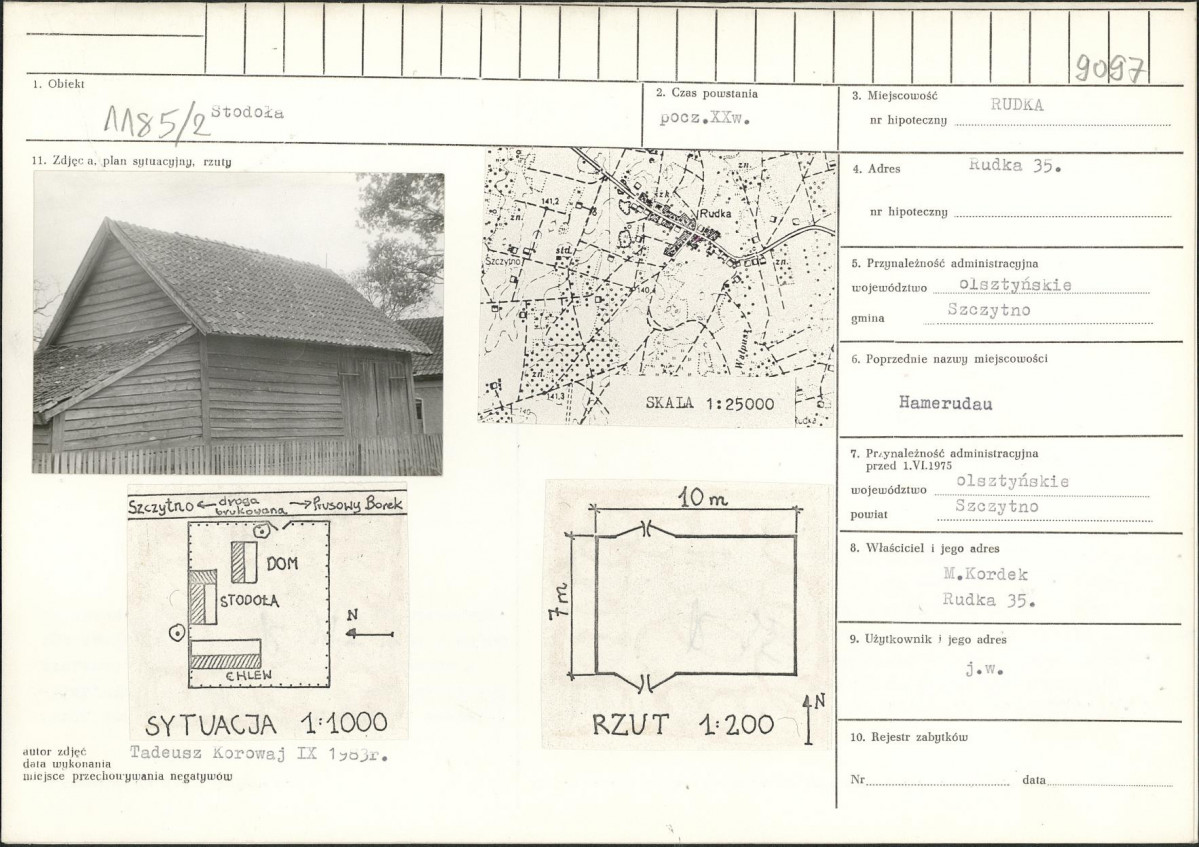 9097
1. Obiekt
1185/2 Stodoła
2. Czas powstania
pocz.XXw.
3. Miejscowość RUDKA
nr hipoteczny
11. Zdjęcia, plan sytuacyjny, rzuty
4. Adres Rudka 35.
nr hipoteczny
5. Przynależność administracyjna
województwo olsztyńskie
gmina Szczytno
6. Poprzednie nazwy miejscowości
Hamerudau
7. Przynależność administracyjna
przed 1.VI.1975
województwo olsztyńskie
powiat Szczytno
8. Właściciel i jego adres
M.Kordek
Rudka 35.
9. Użytkownik i jego adres
j.w.
10. Rejestr zabytków
Nr data
zn.
141,2
zn.
Rudka
std.
zn.
Szczytno
140,4
Wałpusz
zn.
141,3
140
Rudka
SKALA 1:25000
Szczytno droga brukowana Prusowy Borek
DOM
STODOŁA
N
CHLEW
SYTUACJA 1:1000
10 m
7 m
N
RZUT 1:200
autor zdjęć Tadeusz Korowaj IX 1983r.
data wykonania
miejsce przechowywania negatywów